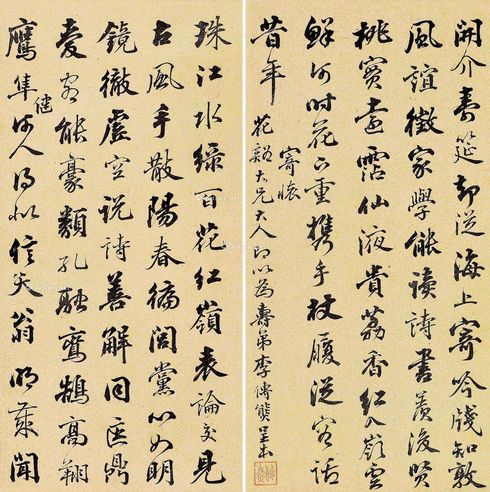 珠江水綠百花紅嶺表論交見
古風手散陽春徧閭黨心如明
鏡徹虛空說詩善解同匡鼎
愛客能豪類孔融鸞鵠高翔
鷹隼繼何人得似信天翁聞
開介壽筵却從海上寄吟牋知敦
風誼徵家學能讀詩書羨後賢
桃實遠霑仙液貴荔香紅入嶺雲
鮮何時花下重攜手杖履從容話
昔年
寄懷
花谿大兄大人即以為壽弟李傳熊呈本